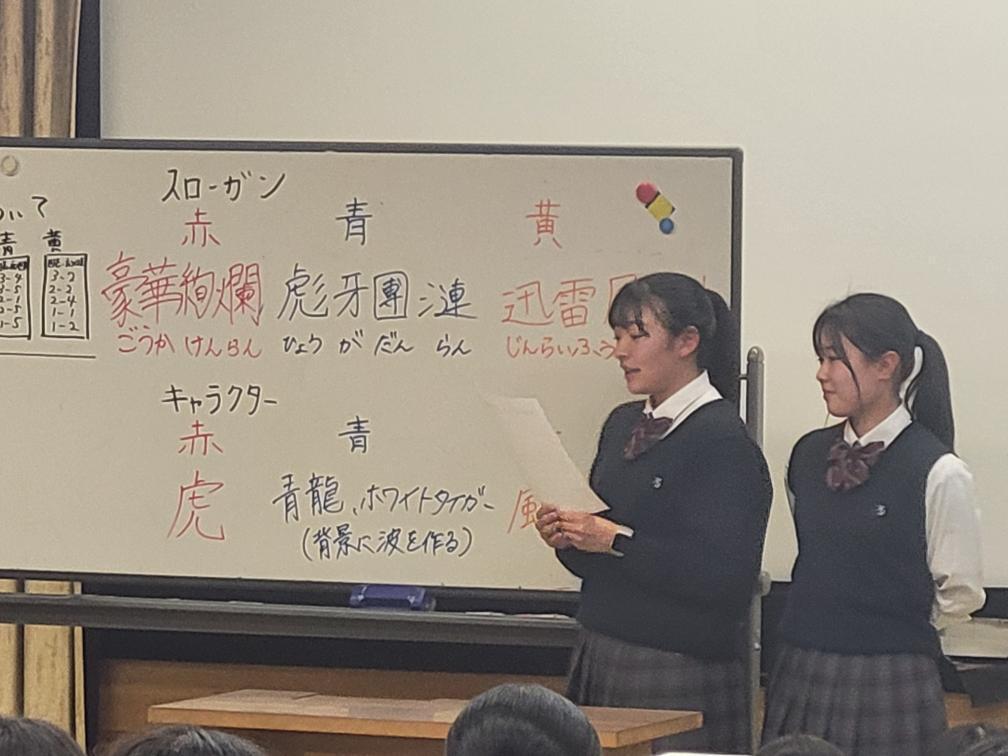 スローガン
赤 青 黄
豪華絢爛 彪牙團漣 迅雷
ごうか けんらん ひょう が だん らん じんらいふう
キャラクター
赤 青
虎 青龍、ホワイトタイガー
(背景に波を作る)
いて
青 黄
3-2
2-2
2-4
1-1
1-2